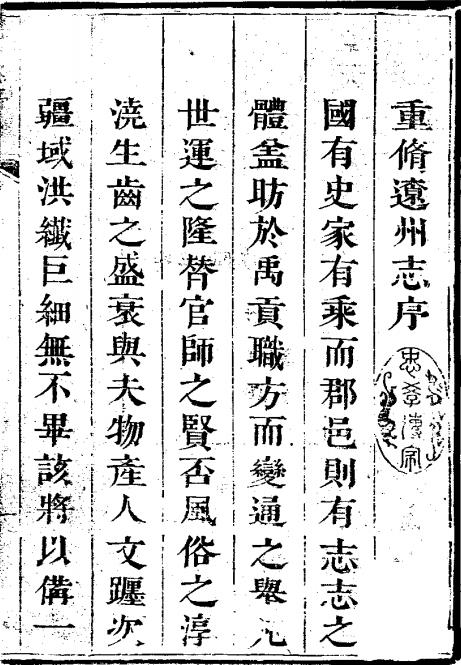 重脩遼州志序
國有史家有乘而郡邑則有志志之
體盖昉於禹貢職方而變通之舉凡
世運之隆替官師之賢否風俗之淳
澆生齒之盛衰與夫物產人文躔次
疆域洪纎巨細無不畢該將以備一
忠孝傳家